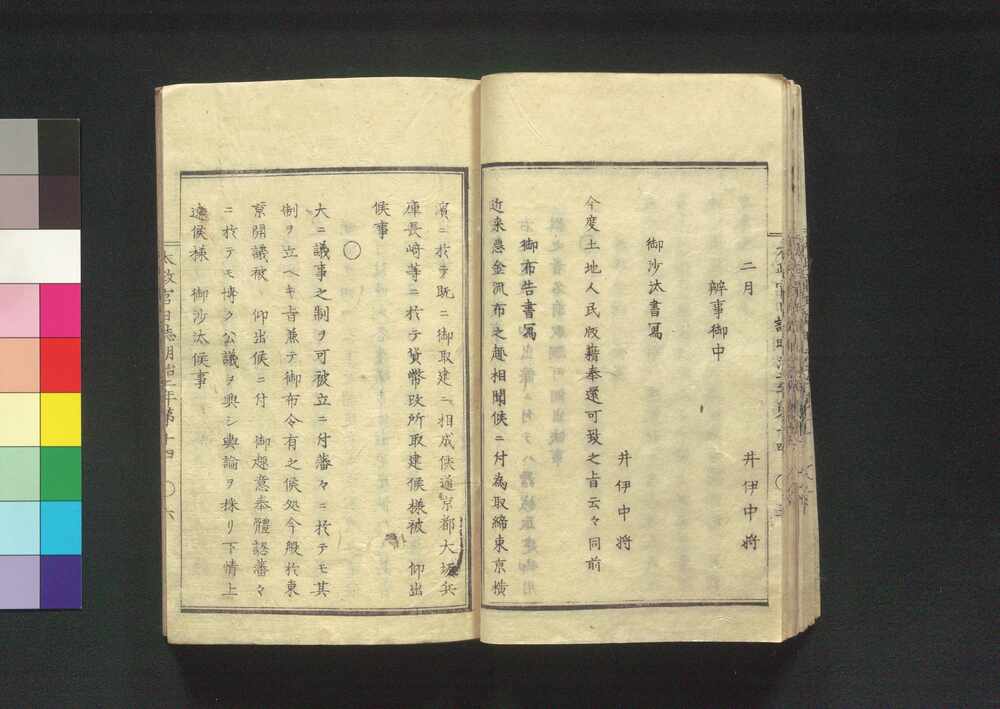 二月
井伊中将
辨事御中
御沙汰書寫
井伊中将
今度土地人民版籍奉還可致之旨云々同前
御布告書寫
近来悪金流布之趣相聞候ニ付為取締東京横
濱ニ於テ既ニ御取建ニ相成候通京都大坂兵
庫長崎等ニ於テ貨幣改所取建候様被 仰出
候事
〇
大ニ議事之制ヲ可被立ニ付藩々ニ於テモ其
制ヲ立ヘキ旨兼テ御布令有之候処今般於東
京開議被 仰出候ニ付 御趣意奉體認藩々
ニ於テモ博ク公議ヲ興シ輿論ヲ採リ下情上
達候様 御沙汰候事
太政官日誌明治二年第十四 〇 六